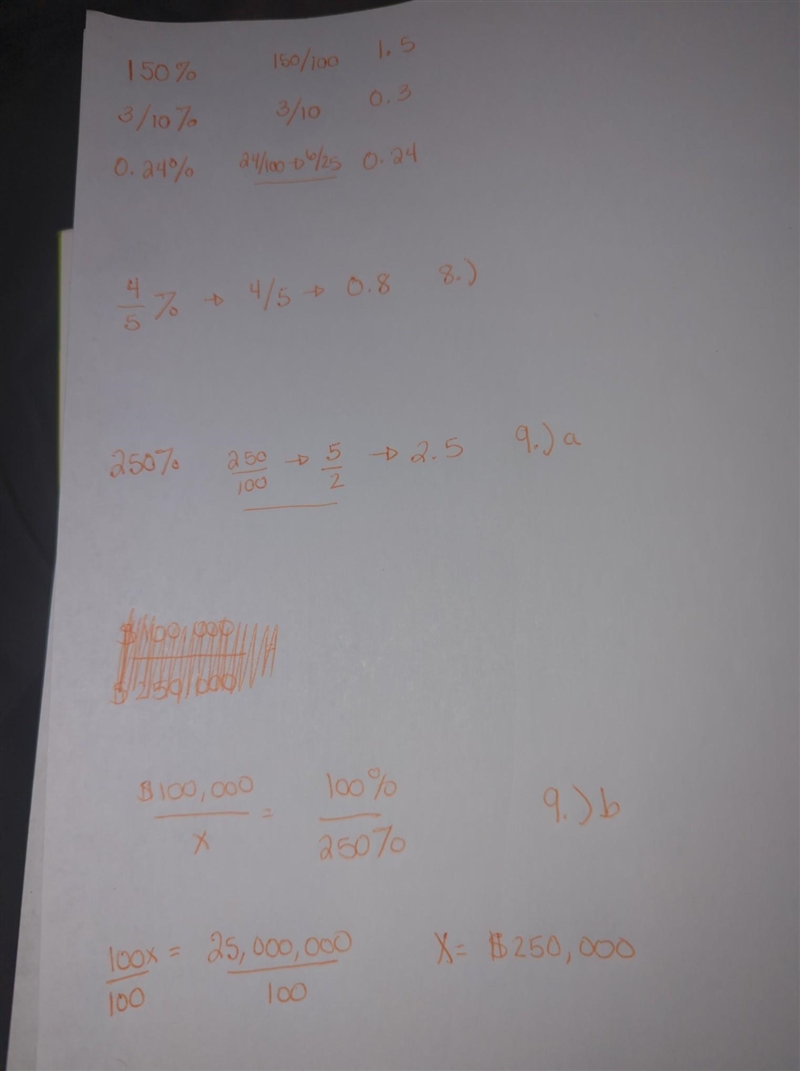 150% 150/100 1.5
3/10% 3/10 0.3
0.24% 24/100 → 6/25 0.24
4/5 % → 4/5 → 0.8 8.)
250% 250/100 → 5/2 → 2.5 9.) a
$100,000
$250,000
$100,000/x = 100%/250% 9.) b
100x/100 = 25,000,000/100 x = $250,000